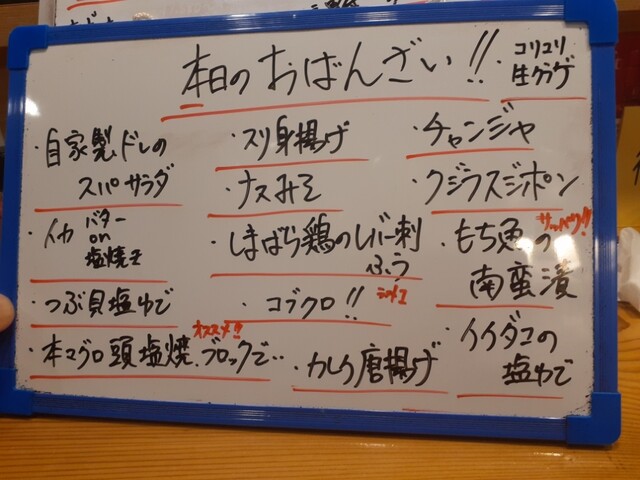 本日のおばんざい!!
・コリコリ
生クラゲ
・自家製ドレの
スパサラダ
・イカ バター
on
塩焼き
・つぶ貝塩ゆで
・本マグロ頭塩焼、ブロックで‥
オススメ!!
・スリ身揚げ
・ナスみそ
・しまばら鶏のレバー刺
ふう
・コブクロ!!
・カレイ唐揚げ
・チャンジャ
・クジラスジポン
・もち魚の
サッパリ!!
南蛮漬
・イイダコの
塩ゆで